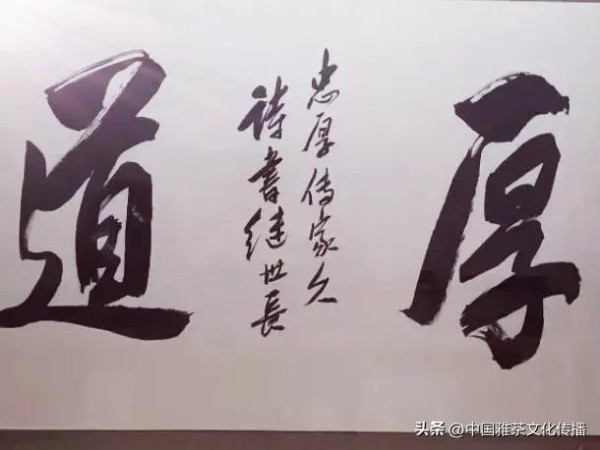 厚
忠厚传家久
诗書继世長
道
头条 @中国雅茶文化传播